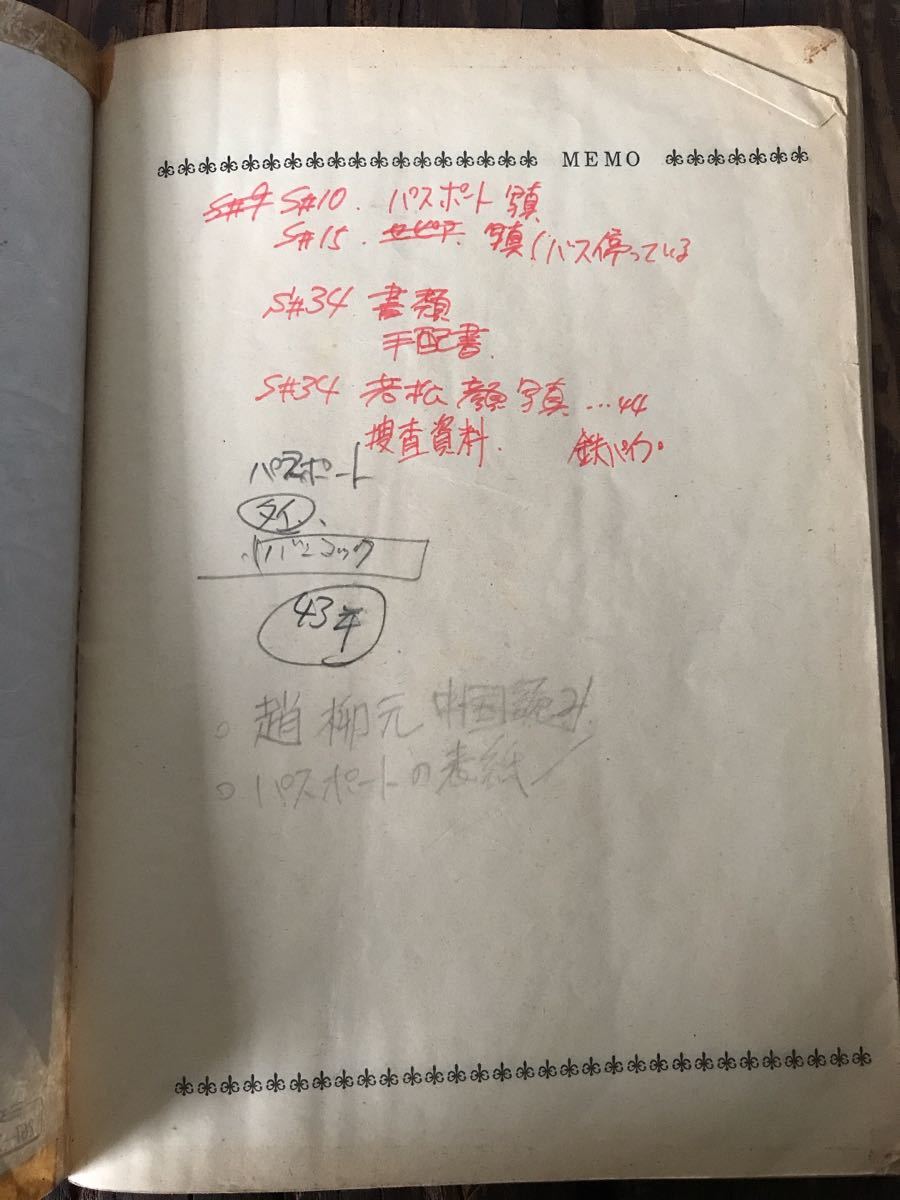 MEMO
S#9 S#10. パスポート 写真
S#15. セピア. 写真 バス停っている
S#34 書類
手配書.
S#34 若松 顔写真 …44
捜査資料. 鉄パイプ
パスポート
タイ、
バンコック
43年
。趙 柳元 中国読み
。パスポートの表紙